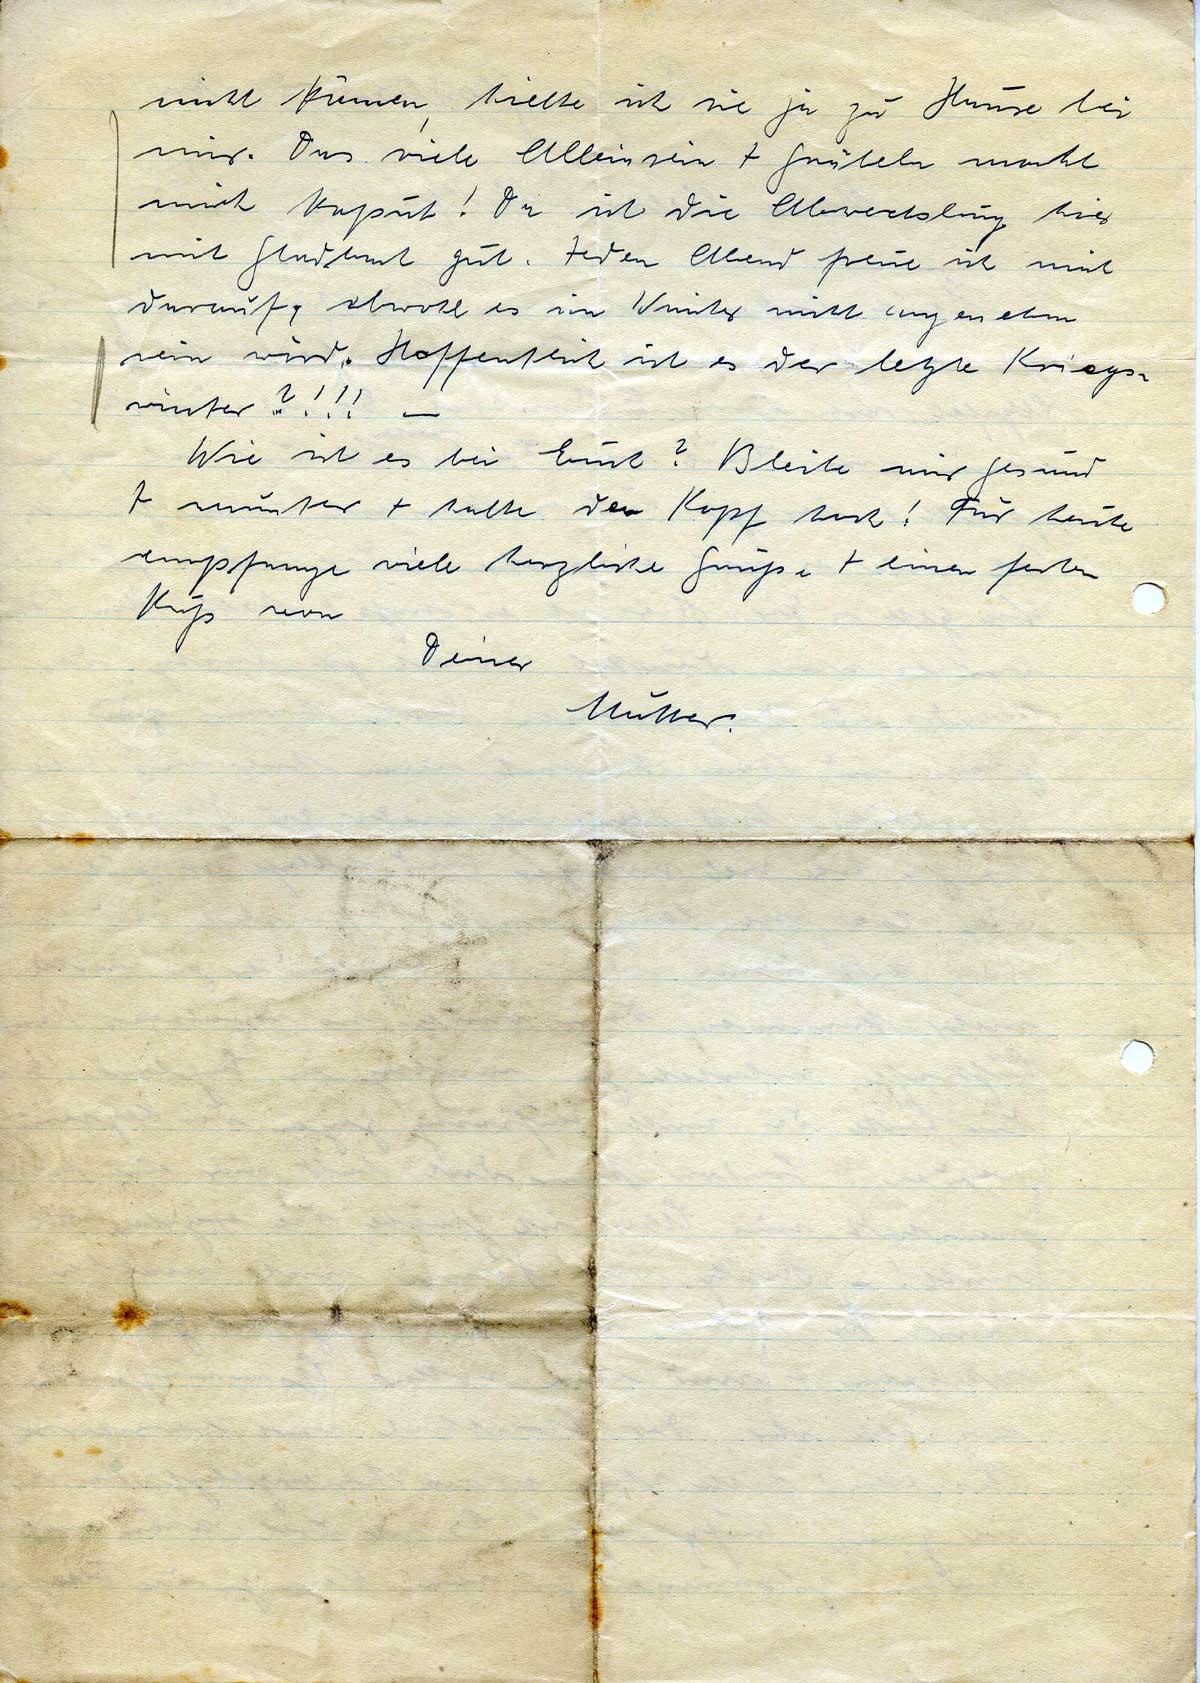 nicht kämen, hielte ich sie ja zu Hause bei
mir. Das viele Alleinsein + Grübeln macht
mich kaputt! Da ist die Abwechslung hier
mit gut. Jeden Abend freue ich mich
darauf, obwohl es im Winter nicht angenehm
sein wird. Hoffentlich ist es der letzte Kriegs-
winter?!!! —
Wie ist es bei Euch? Bleibe mir gesund
+ munter + halte den Kopf hoch! Für heute
empfange viele herzliche Grüße + einen festen
Kuß von
Deiner
Mutter.